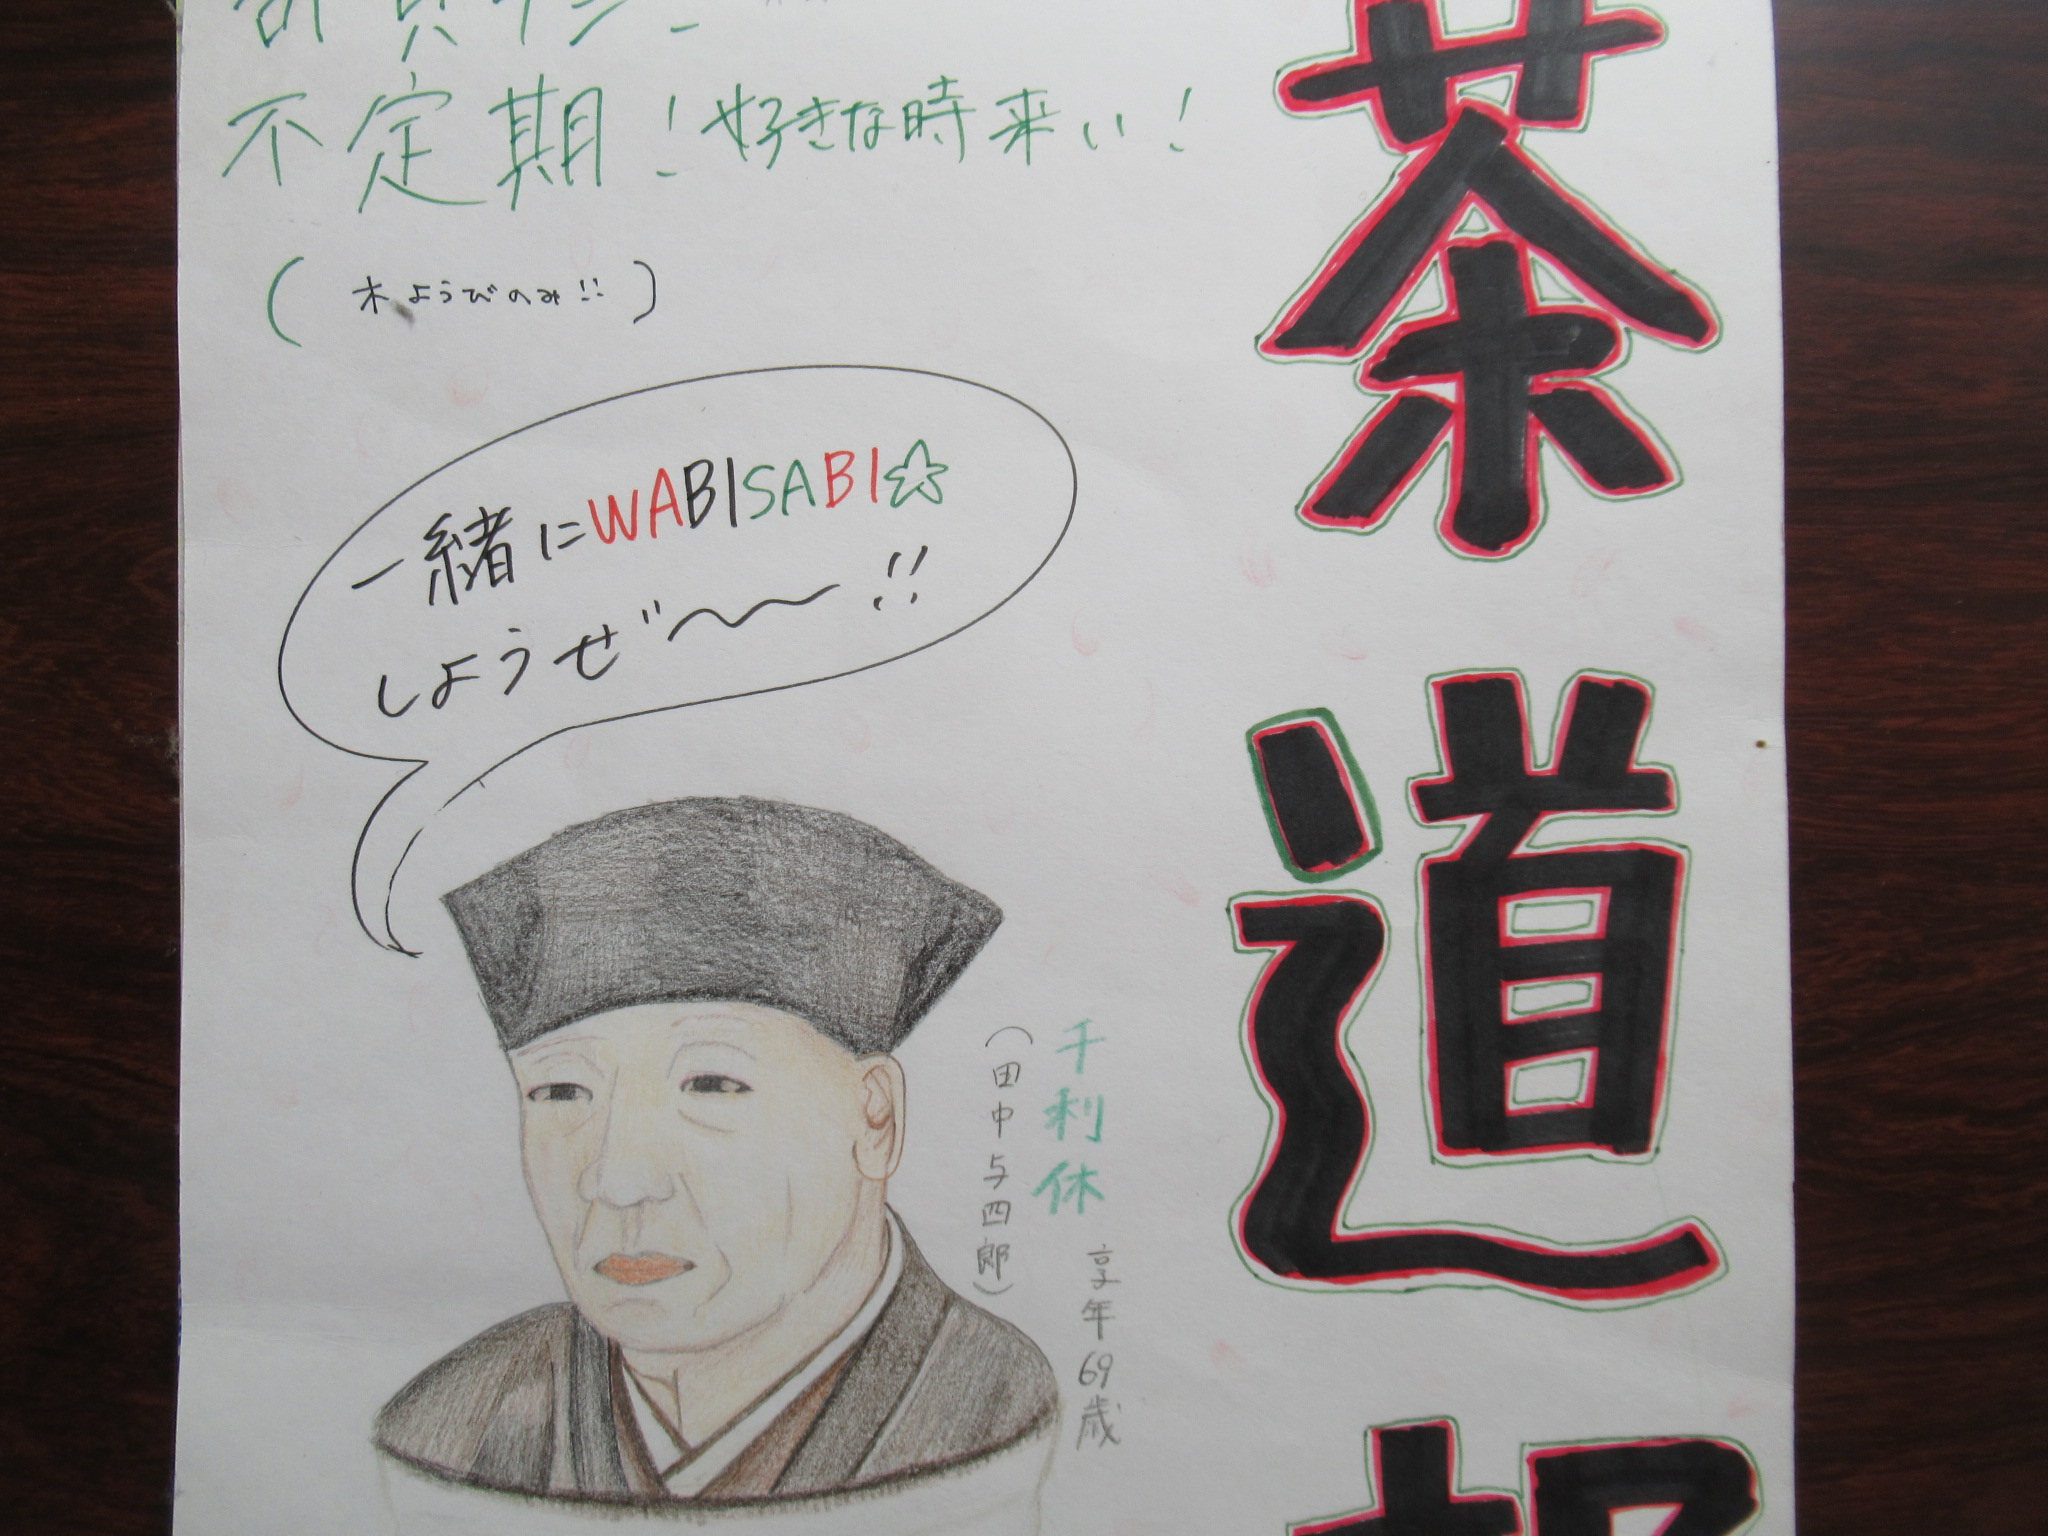 茶道
不定期!好きな時来い!
(木ようびのみ!!)
一緒にWABISABI☆
しようぜ〜〜!!
千利休
享年69歳
(田中与四郎)